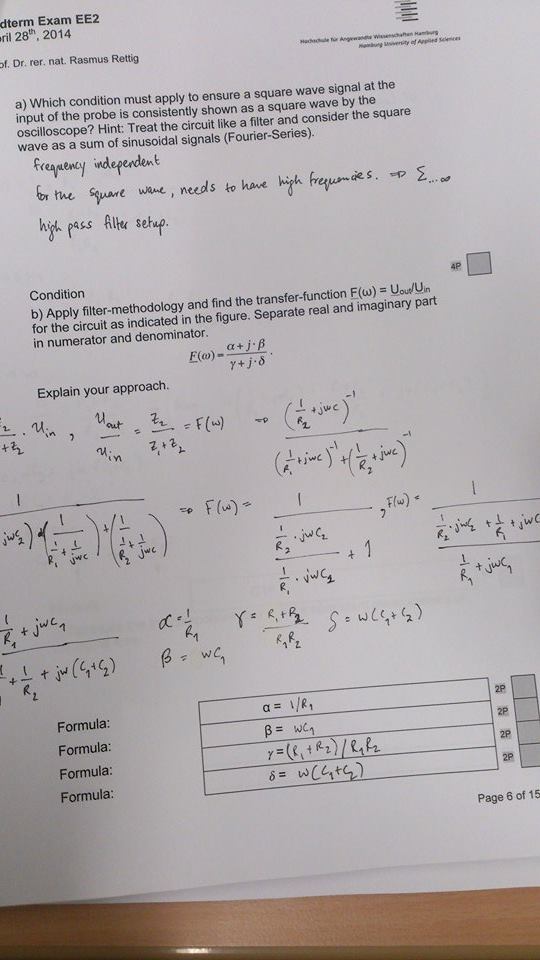 dterm Exam EE2
ril 28th, 2014
of. Dr. rer. nat. Rasmus Rettig
Hochschule für Angewandte Wissenschaften Hamburg
Hamburg University of Applied Sciences
a) Which condition must apply to ensure a square wave signal at the
input of the probe is consistently shown as a square wave by the
oscilloscope? Hint: Treat the circuit like a filter and consider the square
wave as a sum of sinusoidal signals (Fourier-Series).
frequency independent
for the square wave, needs to have high frequencies. ⇒ Σ...∞
high pass filter setup.
4P
Condition
b) Apply filter-methodology and find the transfer-function F(ω) = Uout/Uin
for the circuit as indicated in the figure. Separate real and imaginary part
in numerator and denominator.
F(ω) = (α + j·β)/(γ + j·δ).
Explain your approach.
2/+Z2 · Uin , Uout/Uin = Z2/(Z1+Z2) = F(ω) ⇒ (1/R2 + jωC)^-1 / ((1/R1 + jωC)^-1 + (1/R2 + jωC)^-1)
⇒ F(ω) = 1/((1/R2 · jωC2)/(1/R1 · jωC2) + 1) , F(ω) = 1/((1/R2 · jωC2 + 1/R1 + jωC)/(1/R1 + jωC1))
1/R1 + jωC1 / + 1/R2 + jω(C1+C2)
α = 1/R1 γ = (R1+R2)/(R1R2) δ = ω(C1+C2)
β = ωC1
Formula: α = 1/R1 2P
Formula: β = ωC1 2P
Formula: γ = (R1+R2)/R1R2 2P
Formula: δ = ω(C1+C2) 2P
Page 6 of 15